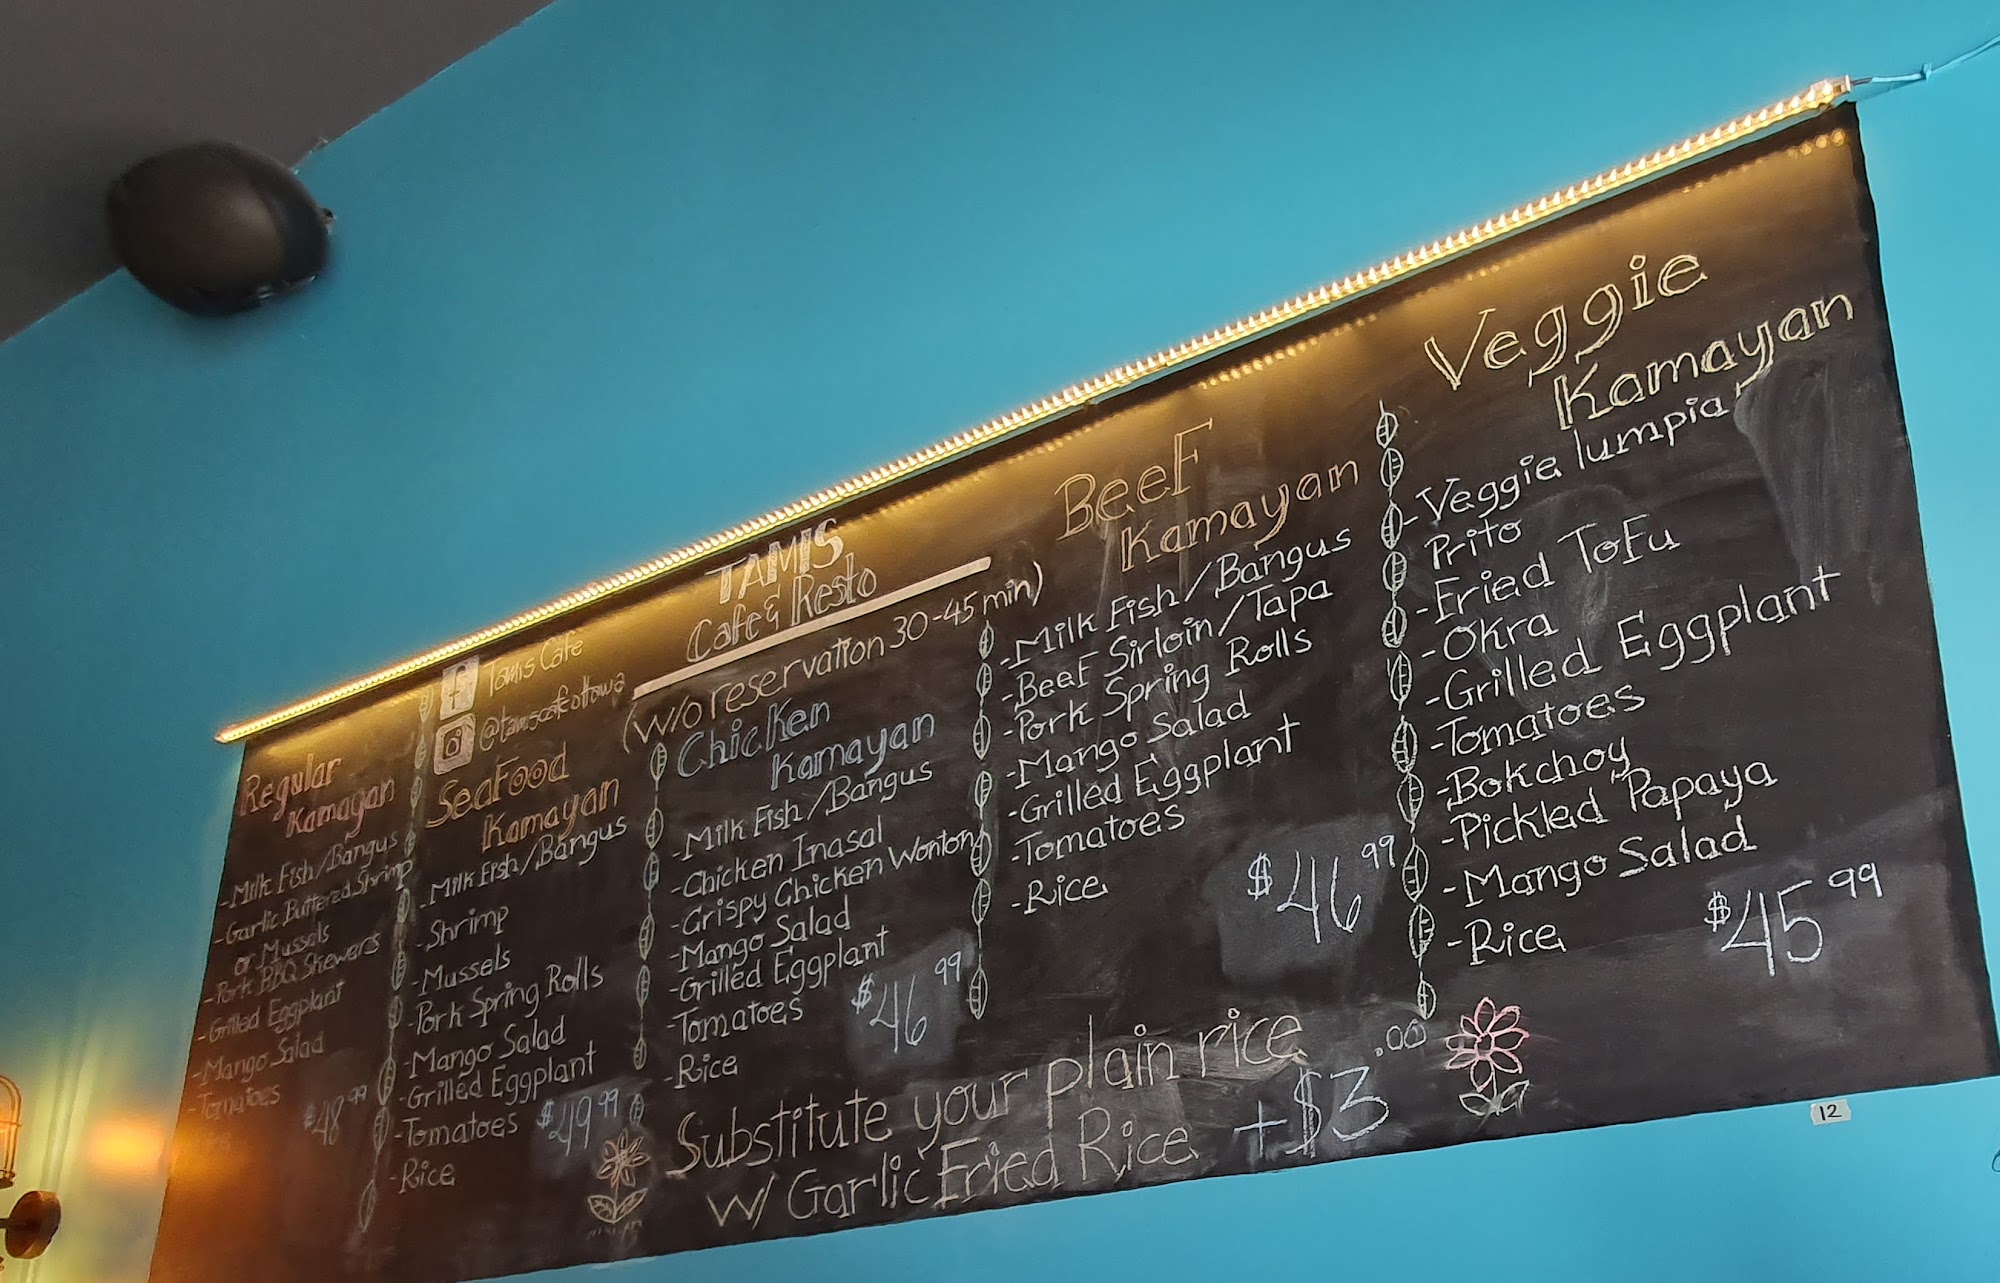 TAMIS
Cafe & Resto
(w/o reservation 30-45 min)
Tamis Cafe
@tamiscafeottawa
Regular
Kamayan
-Milk Fish/Bangus
-Garlic Buttered Shrimp
or Mussels
-Pork BBQ Skewers
-Grilled Eggplant
-Mango Salad
-Tomatoes
$48.99
SeaFood
Kamayan
-Milk Fish/Bangus
-Shrimp
-Mussels
-Pork Spring Rolls
-Mango Salad
-Grilled Eggplant
-Tomatoes
-Rice
$49.99
Chicken
Kamayan
-Milk Fish/Bangus
-Chicken Inasal
-Crispy Chicken Wonton
-Mango Salad
-Grilled Eggplant
-Tomatoes
-Rice
$46 99
BeeF
Kamayan
-Milk Fish/Bangus
-BeeF Sirloin/Tapa
-Pork Spring Rolls
-Mango Salad
-Grilled Eggplant
-Tomatoes
-Rice
$46 99
Veggie
Kamayan
-Veggie lumpia
Prito
-Fried ToFu
-Okra
-Grilled Eggplant
-Tomatoes
-Bokchoy
-Pickled Papaya
-Mango Salad
-Rice
$45 99
Substitute your plain rice
w/ Garlic Fried Rice +$3.00
12